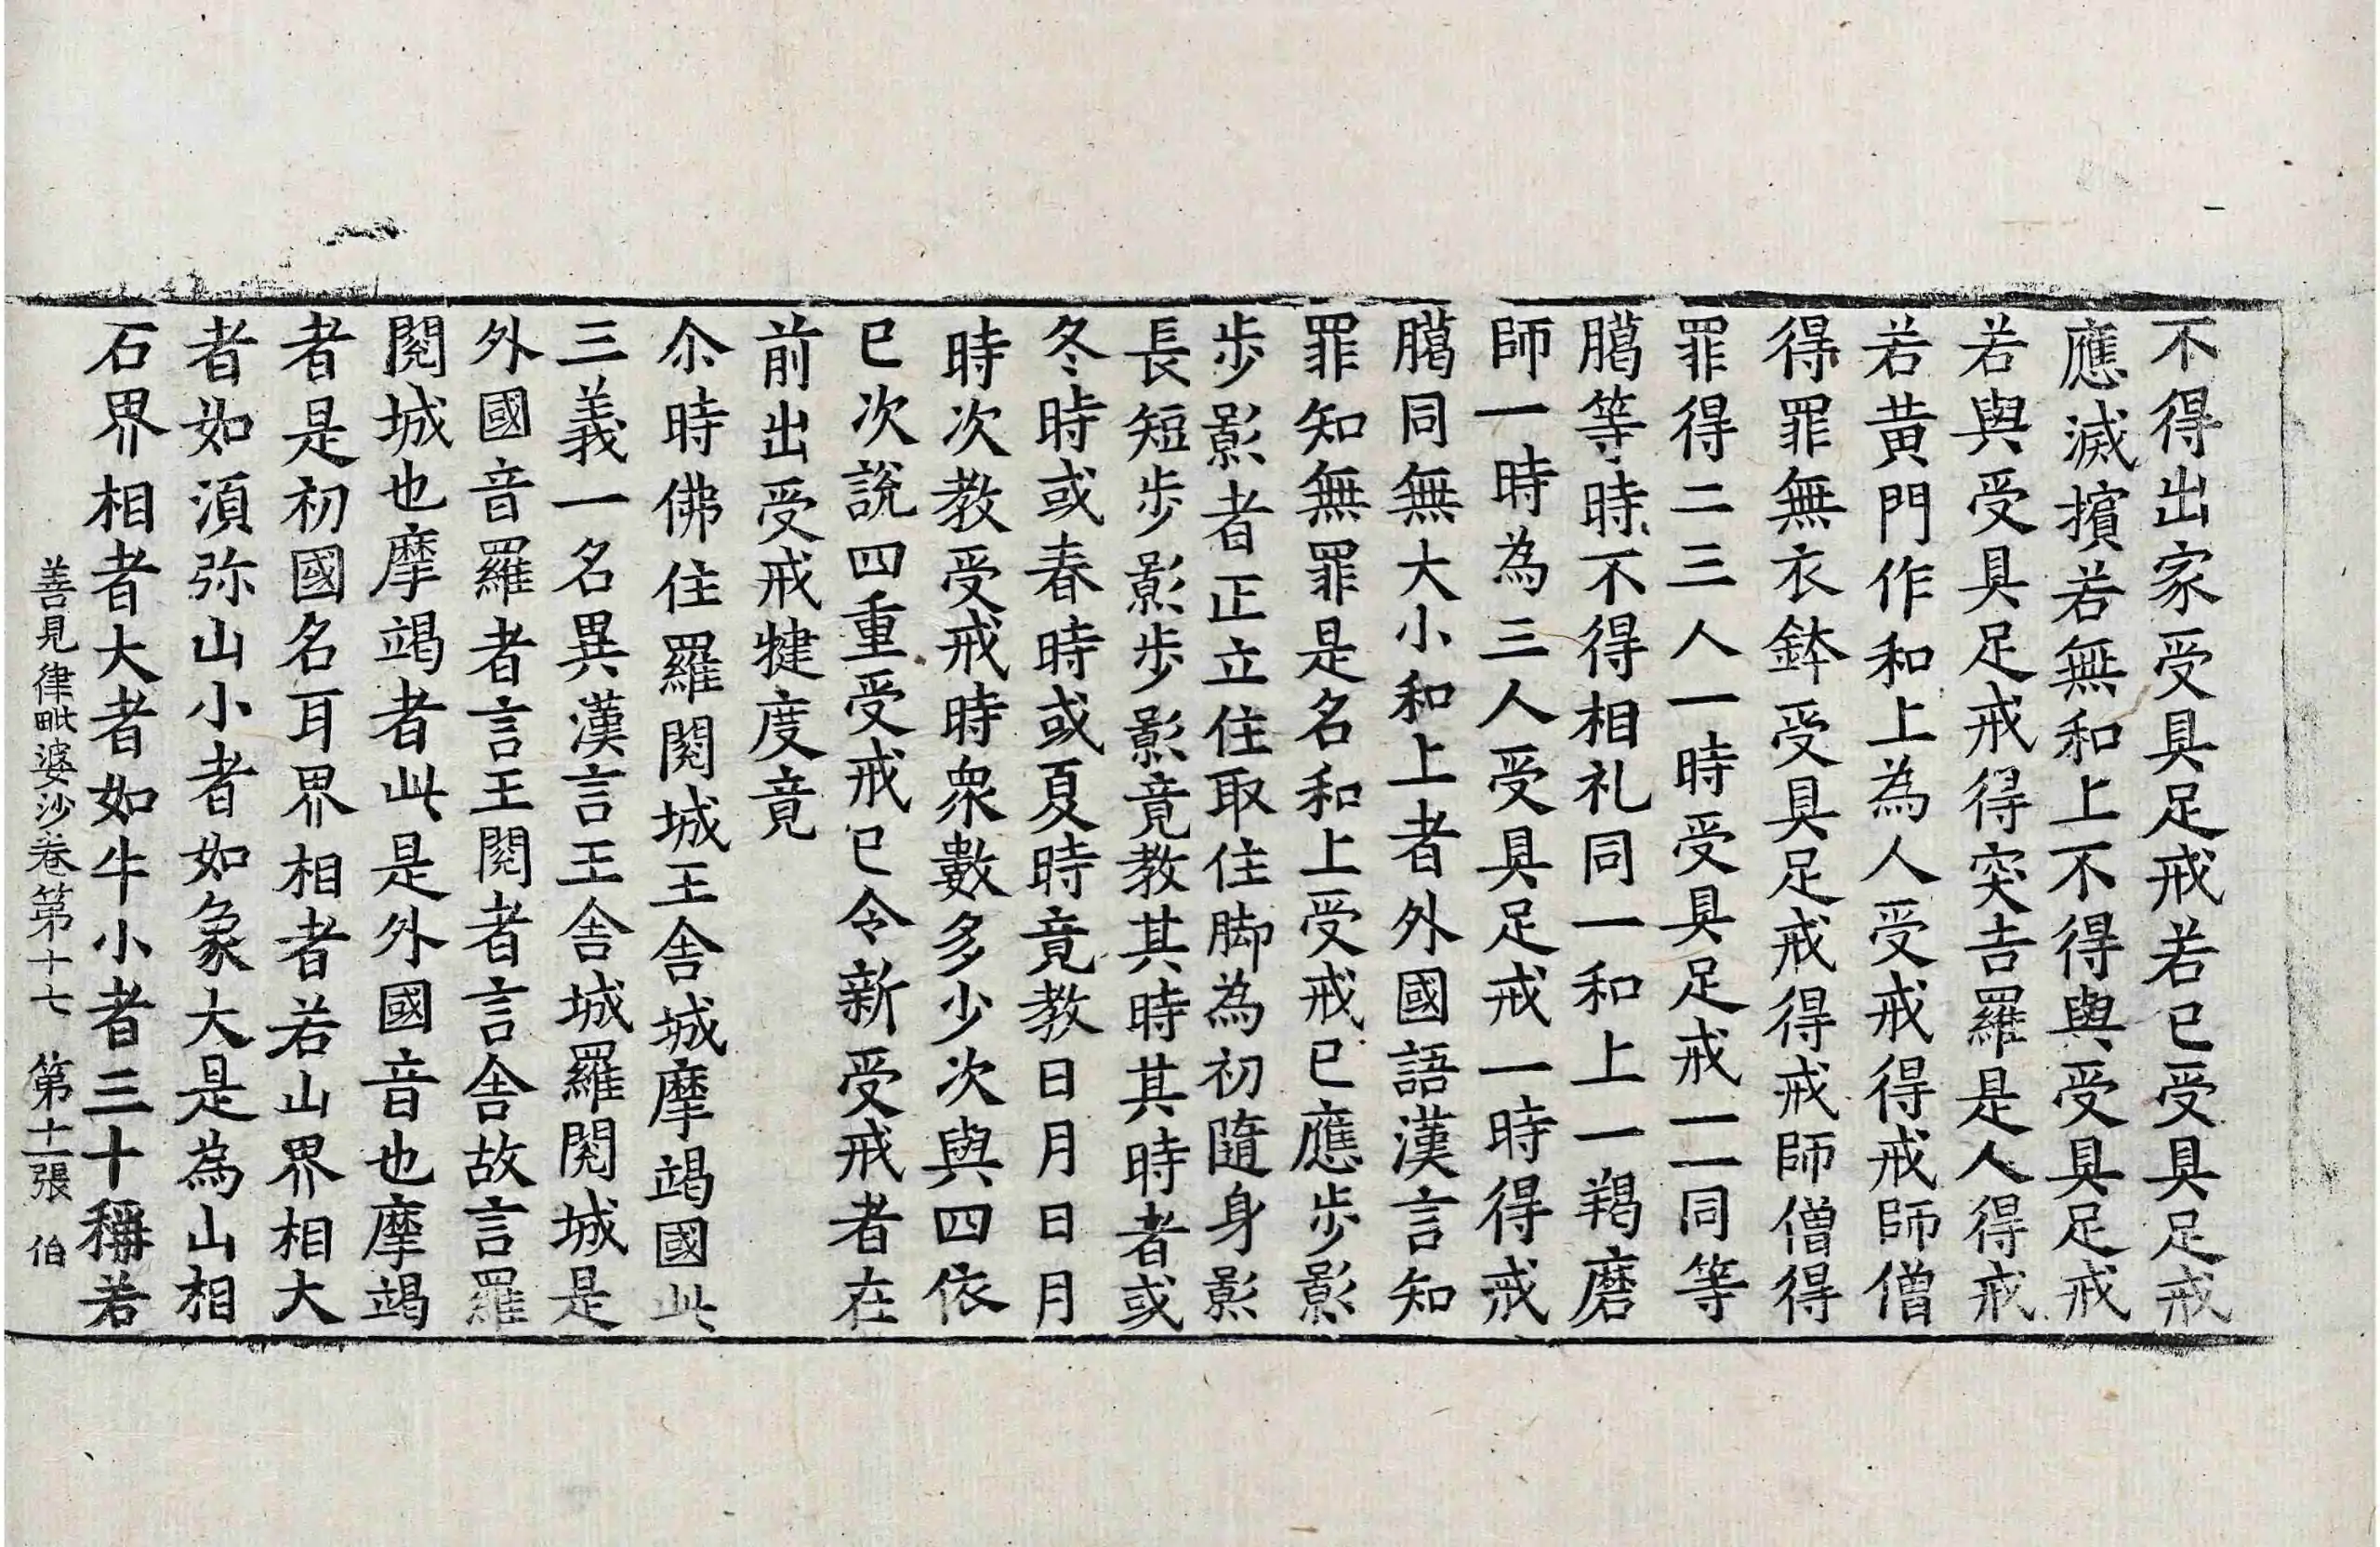 不得出家受具足戒若已受具足戒
應滅擯若無和上不得與受具足戒
若與受具足戒得突吉羅是人得戒
若黃門作和上為人受戒得戒師僧
得罪無衣鉢受具足戒得戒師僧得
罪得二三人一時受具足戒一一同等
臈等時不得相礼同一和上一羯磨
師一時為三人受具足戒一時得戒
臈同無大小和上者外國語漢言知
罪知無罪是名和上受戒已應步影
步影者正立住取住脚為初隨身影
長短步影步影竟教其時其時者或
冬時或春時或夏時竟教日月日月
時次教受戒時衆數多少次與四依
已次說四重受戒已令新受戒者在
前出受戒犍度竟
尒時佛住羅閱城王舍城摩竭國此
三義一名異漢言王舍城羅閱城是
外國音羅者言王閱者言舍故言羅
閱城也摩竭者此是外國音也摩竭
者是初國名耳界相者若山界相大
者如湏弥山小者如象大是為山相
石界相者大者如牛小者三十稱若
善見律毗婆沙卷第十七　第十二張　伯